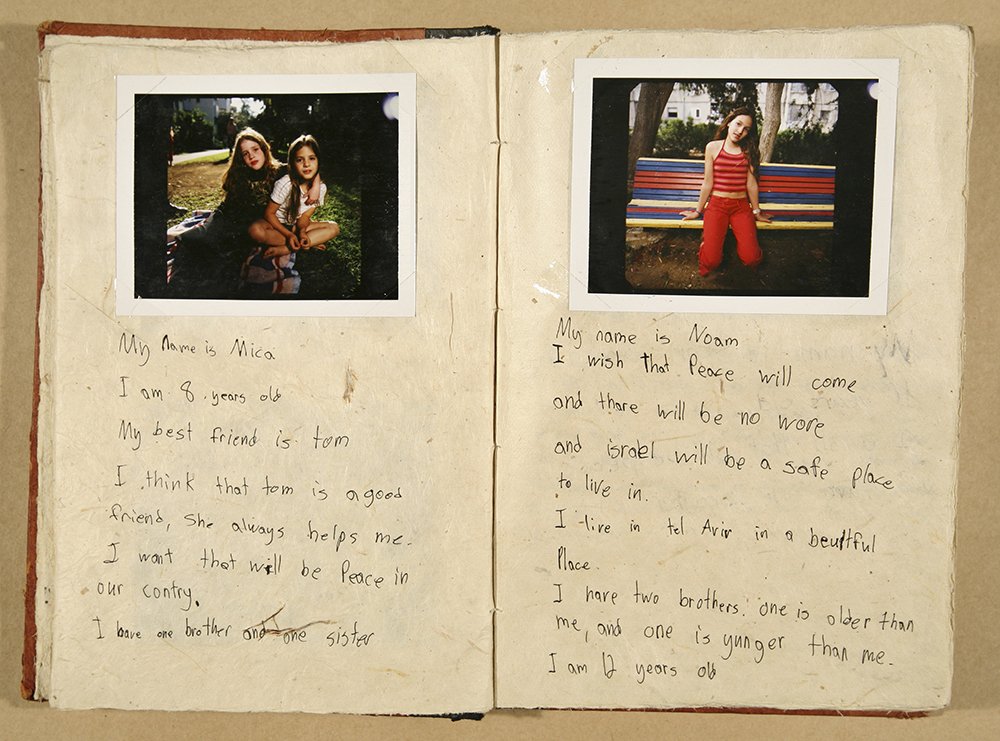 My name is Mica
I am 8 years old
My best friend is tom
I think that tom is a good
friend, She always helps me.
I want that will be Peace in
our contry.
I have one brother and one sister
My name is Noam
I wish that Peace will come
and thare will be no wore
and israel will be a safe place
to live in.
I live in tel Aviv in a beutful
Place.
I have two brothers. one is older than
me, and one is yunger than me.
I am 12 years old